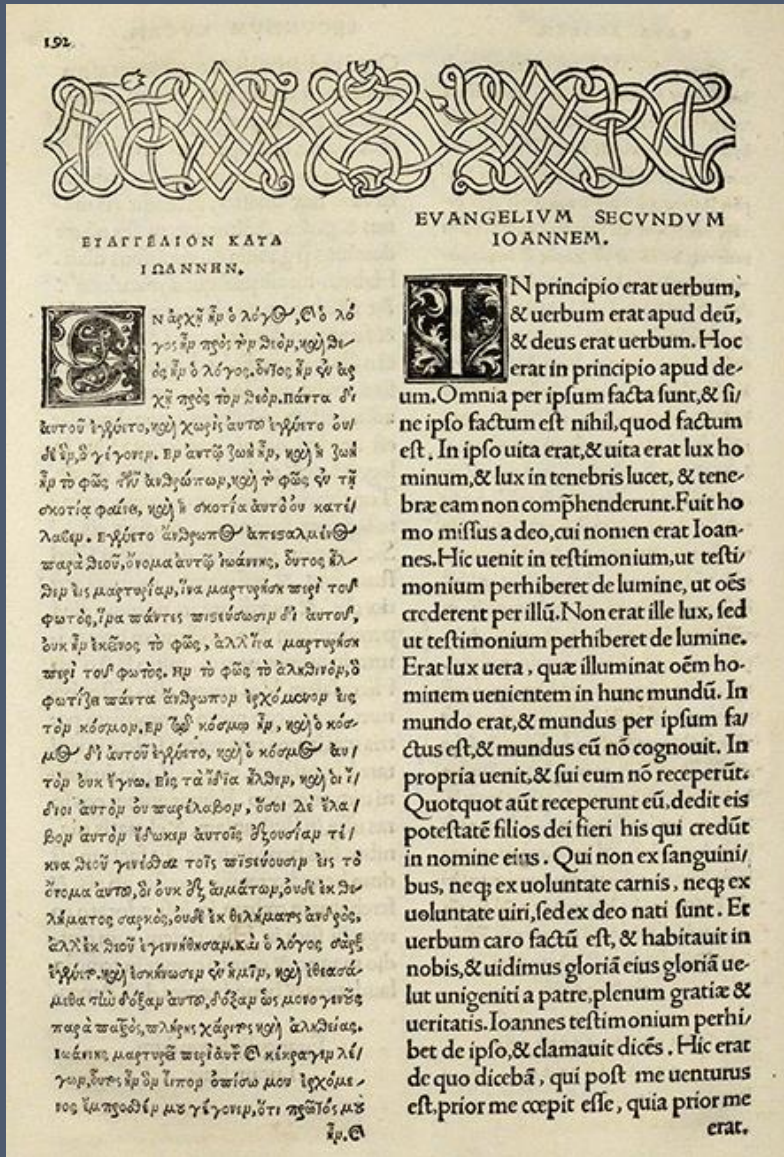 192
ΕΥΑΓΓΕΛΙΟΝ ΚΑΤΑ
ΙΩΑΝΝΗΝ.
ΕΝ ἀρχῇ ἦν ὁ λόγος, καὶ ὁ λό
γος ἦν πρὸς τὸν θεὸν, καὶ θε-
ός ἦν ὁ λόγος. οὗτος ἦν ἐν ἀρ
χῇ πρὸς τὸν θεόν. πάντα δι'
ἀυτοῦ ἐγένετο, καὶ χωρὶς ἀυτοῦ ἐγένετο ου/
δὲ ἕν, ὃ γέγονεν. Εν ἀυτῷ ζωὴ ἦν, καὶ ἡ ζωὴ
ἦν τὸ φῶς τῶν ἀνθρώπων, καὶ τὸ φῶς ἐν τῇ
σκοτίᾳ φαίνει, καὶ ἡ σκοτία ἀυτὸ ου κατέ/
λαβεν. Εγένετο ἄνθρωπος ἀπεσαλμένος
παρὰ θεοῦ, ὄνομα ἀυτῷ ἰωάννης, ὅυτος ἦλ-
θεν εἰς μαρτυρίαν, ἵνα μαρτυρήσῃ περὶ τοῦ
φωτὸς, ἵνα πάντες πιςεύσωσιν δι' ἀυτοῦ,
ὀυκ ἦν ἐκεῖνος τὸ φῶς, ἀλλ' ἵνα μαρτυρήσῃ
περὶ τοῦ φωτὸς. Ην τὸ φῶς τὸ ἀληθινὸν, ὃ
φωτίζει πάντα ἄνθρωπον ἐρχόμενον εἰς
τὸν κόσμον, Εν τῷ κόσμῳ ἦν, καὶ ὁ κόσ-
μος δι' ἀυτοῦ ἐγένετο, καὶ ὁ κόσμος ἀυ/
τὸν ουκ ἔγνω. Εἰς τὰ ἴδια ἦλθεν, καὶ ὁι ἴ/
διοι ἀυτὸν ου παρέλαβον, ὅσοι δὲ ἔλα/
βον ἀυτὸν ἔδωκεν ἀυτοῖς ἐξουσίαν τέ/
κνα θεοῦ γενέσθαι τοῖς πιςεύουσιν εἰς τὸ
ὄνομα ἀυτοῦ, ὁι ουκ ἐξ ἁιμάτων, ουδὲ ἐκ θε-
λήματος σαρκὸς, ουδὲ ἐκ θελήματος ἀνδρὸς,
ἀλλ' ἐκ θεοῦ ἐγεννήθησαν. Καὶ ὁ λόγος σὰρξ
ἐγένετο, καὶ ἐσκήνωσεν ἐν ἡμῖν, καὶ ἐθεασά-
μεθα τὴν δόξαν ἀυτοῦ, δόξαν ὡς μονογενοῦς
παρὰ πατρὸς, πλήρης χάριτος καὶ ἀληθείας.
Ιωάννης μαρτυρεῖ περὶ ἀυτοῦ καὶ κέκραγεν λέ/
γων, ὅυτος ἦν ὃν εἶπον ὀπίσω μου ἐρχόμε-
νος ἔμπροσθέν μου γέγονεν, ὅτι πρῶτός μου
ἦν. καὶ
EVANGELIVM SECVNDVM
IOANNEM.
IN principio erat uerbum,
& uerbum erat apud deū,
& deus erat uerbum. Hoc
erat in principio apud de-
um. Omnia per ipsum facta sunt, & si/
ne ipso factum est nihil, quod factum
est. In ipso uita erat, & uita erat lux ho
minum, & lux in tenebris lucet, & tene-
bræ eam non comp̄henderunt. Fuit ho
mo missus a deo, cui nomen erat Ioan-
nes. Hic uenit in testimonium, ut testi/
monium perhiberet de lumine, ut oēs
crederent per illū. Non erat ille lux, sed
ut testimonium perhiberet de lumine.
Erat lux uera, quæ illuminat oēm ho-
minem uenientem in hunc mundū. In
mundo erat, & mundus per ipsum fa/
ctus est, & mundus eū nō cognouit. In
propria uenit, & sui eum nō receperūt.
Quotquot aūt receperunt eū, dedit eis
potestatē filios dei fieri his qui credūt
in nomine eius. Qui non ex sanguini/
bus, neq; ex uoluntate carnis, neq; ex
uoluntate uiri, sed ex deo nati sunt. Et
uerbum caro factū est, & habitauit in
nobis, & uidimus gloriā eius gloriā ue-
lut unigeniti a patre, plenum gratiæ &
ueritatis. Ioannes testimonium perhi/
bet de ipso, & clamauit dicēs. Hic erat
de quo dicebā, qui post me uenturus
est, prior me cœpit esse, quia prior me
erat.